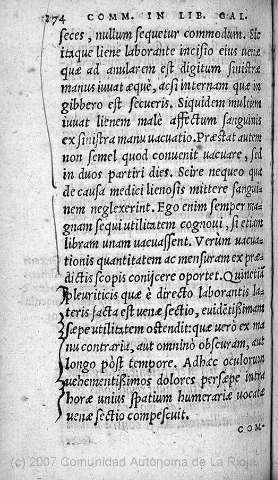 274 COMM. IN LIB. GAL.
seces, nullum sequetur commodum. Sic
itaque liene laborante incisio eius venæ
quæ ad anularem est digitum sinistræ
manus iuvat æquè, ac si internam quæ in
gibbero est secueris. Siquidem multùm
iuvat lienem malè affectum sanguinis
ex sinistra manu vacuatio. Præstat autem
non semel quod convenit vacuare, sed
in duos partiri dies. Scire nequeo qua
de causa medici lienosis mittere sangui
nem neglexerint. Ego enim semper ma
gnam sequi utilitatem cognovi, si etiam
libram unam vacuassent. Verùm vacua
tionis quantitatem ac mensuram ex præ
dictis scopis conijcere oportet. Quinetiã
pleuriticis quæ è directo laborantis la
teris facta est venæ sectio, evidẽtissimam
sæpe utilitatem ostendit: quæ verò ex ma
nu contraria, aut omninò obscuram, aut
longo pòst tempore. Adhæc oculorum
vehementissimos dolores persæpe intra
horæ unius spatium humerariæ vocatæ
venæ sectio compescuit.
COM-
(c) 2007 Comunidad Autónoma de La Rioja